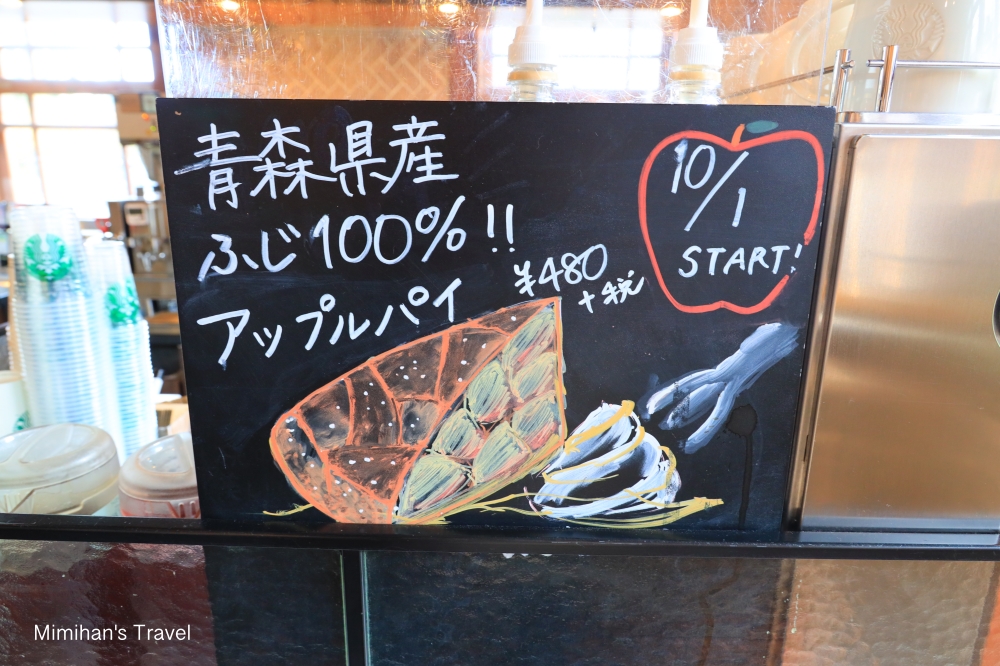 青森県産
ふじ100%!!
アップルパイ
¥480
+税
10/1
START!
Mimihan's Travel